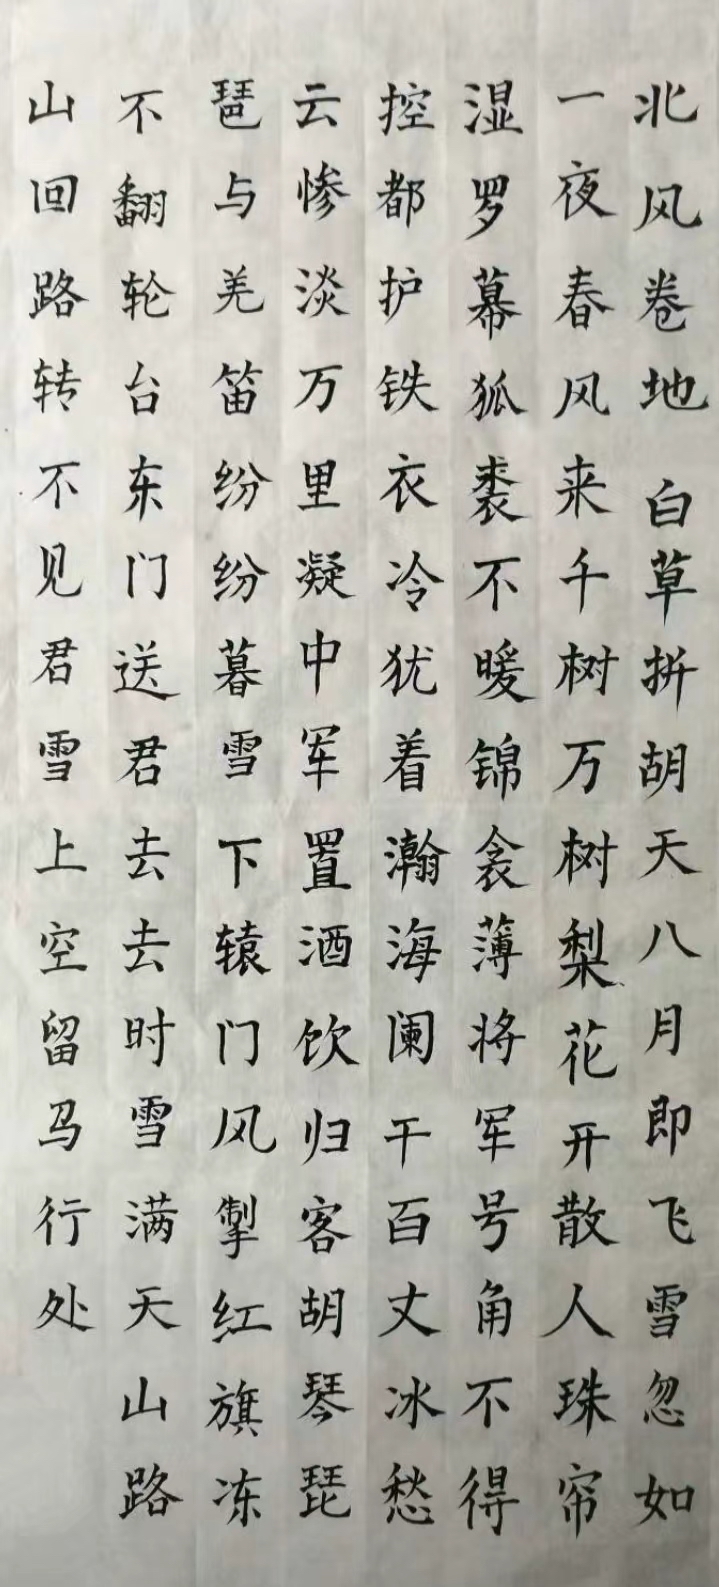 北风卷地白草拼胡天八月即飞雪忽如
一夜春风来千树万树梨花开散人珠帘
湿罗幕狐裘不暖锦衾薄将军号角不得
控都护铁衣冷犹着瀚海阑干百丈冰愁
云惨淡万里凝中军置酒饮归客胡琴琵
琶与羌笛纷纷暮雪下辕门风掣红旗冻
不翻轮台东门送君去去时雪满天山路
山回路转不见君雪上空留马行处